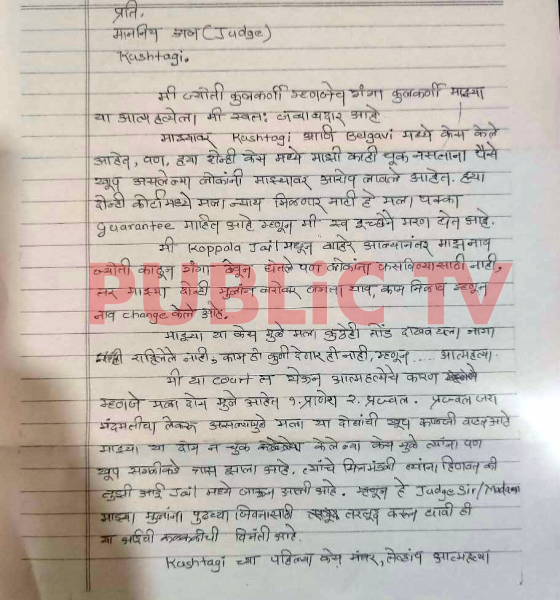 प्रति,
माननिय जज (Judge)
Kushtagi.
मी ज्योती कुलकर्णी म्हणजेच गंगा कुलकर्णी माझ्या
या आत्महत्येला मी स्वतः जबाबदार आहे
माझ्यावर Kushtagi आणि Belgavi मध्ये केस केले
आहेत, पण, ह्या दोन्ही केस मध्ये माझी काही चूक नसताना पैसे
खूप असलेल्या लोकांनी माझ्यावर आरोप लावले आहेत. ह्या
दोन्ही कोर्टामध्ये मला न्याय मिळणार नाही हे मला पक्का
Guarantee माहित आहे म्हणून मी स्व इच्छेने मरण घेत आहे.
मी Koppala Jail मधून बाहेर आल्यानंतर माझ नाव
ज्योती काढून गंगा ठेवून घेतले पण लोकांना फसविण्यासाठी नाही,
तर माझ्या दोन्ही मुलांन बरोबर जगता याव, काम मिळाव म्हणून
नाव change केले आहे.
PUBLIC TV
माझ्या या केस मुळे मला कुठेही तोंड दाखवायला जागा
राहिलेले नाही, काम ही कुणी देणार ही नाही, म्हणून .... आत्महत्या.
मी या court ल येऊन आत्महत्येच कारण
म्हणजे मला दोन मुले आहेत १. प्राणेश २. प्रज्वल. प्रज्वल जरा
मंदमतीचा लेकरु असल्यामुळे मला या दोघांची खूप काळजी वाटत आहे
माझ्या या दोन न चुक केलेल्या केस मुळे त्यांना पण
खूप सगळीकडे त्रास झाला आहे. त्यांचे मित्रमंडळी त्यांना हिणवत की
तुझी आई Jail मध्ये जाऊन आली आहे. म्हणून हे Judge Sir/Madam
माझ्या मुलांना पुढच्या जिवनासाठी तरतूद करून द्यावी ही
या आईची कळकळीची विनंती आहे.
Kushtagi च्या पहिल्या केस नंतर, लेव्हाच आत्महत्या